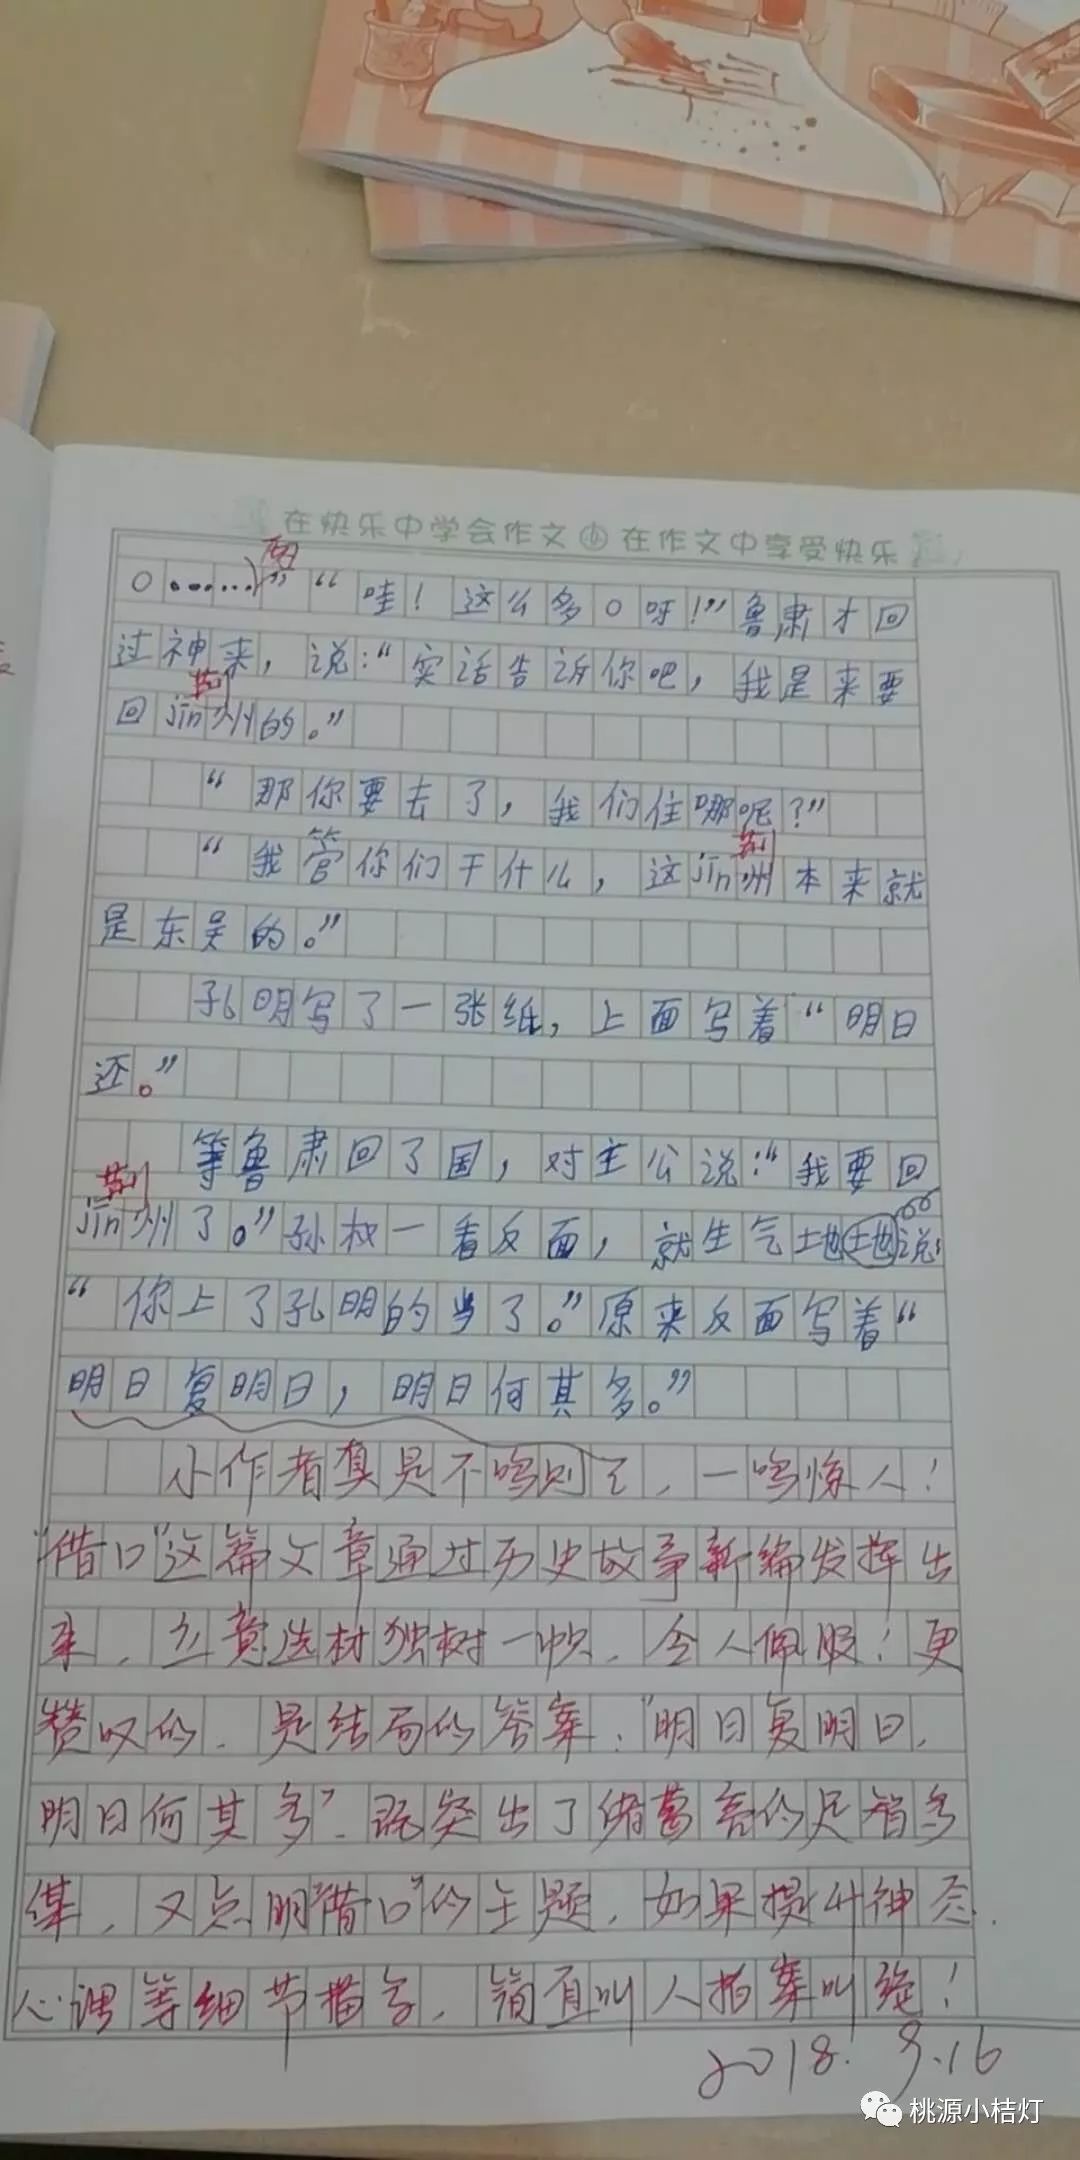 在快乐中学会作文 在作文中享受快乐
○……)”“哇！这么多○呀！”鲁肃才回
过神来，说：“实话告诉你吧，我是来要
荆
回jīn州的。”
“那你要去了，我们住哪呢？”
荆
“我管你们干什么，这jīn州本来就
是东吴的。”
孔明写了一张纸，上面写着“明日
还。”
等鲁肃回了国，对主公说：“我要回
荆
jīn州了。”孙权一看反面，就生气地地说：
“你上了孔明的当了。”原来反面写着“
明日复明日，明日何其多。”
小作者真是不鸣则已，一鸣惊人！
“借口”这篇文章通过历史故事新编发挥出
来，立意选材独树一帜，令人佩服！更
赞叹的，是结局的答案：“明日复明日，
明日何其多”，既突出了诸葛亮的足智多
谋，又点明“借口”的主题，如果提升神态、
心理等细节描写，简直叫人拍案叫绝！
2018.9.16
桃源小桔灯